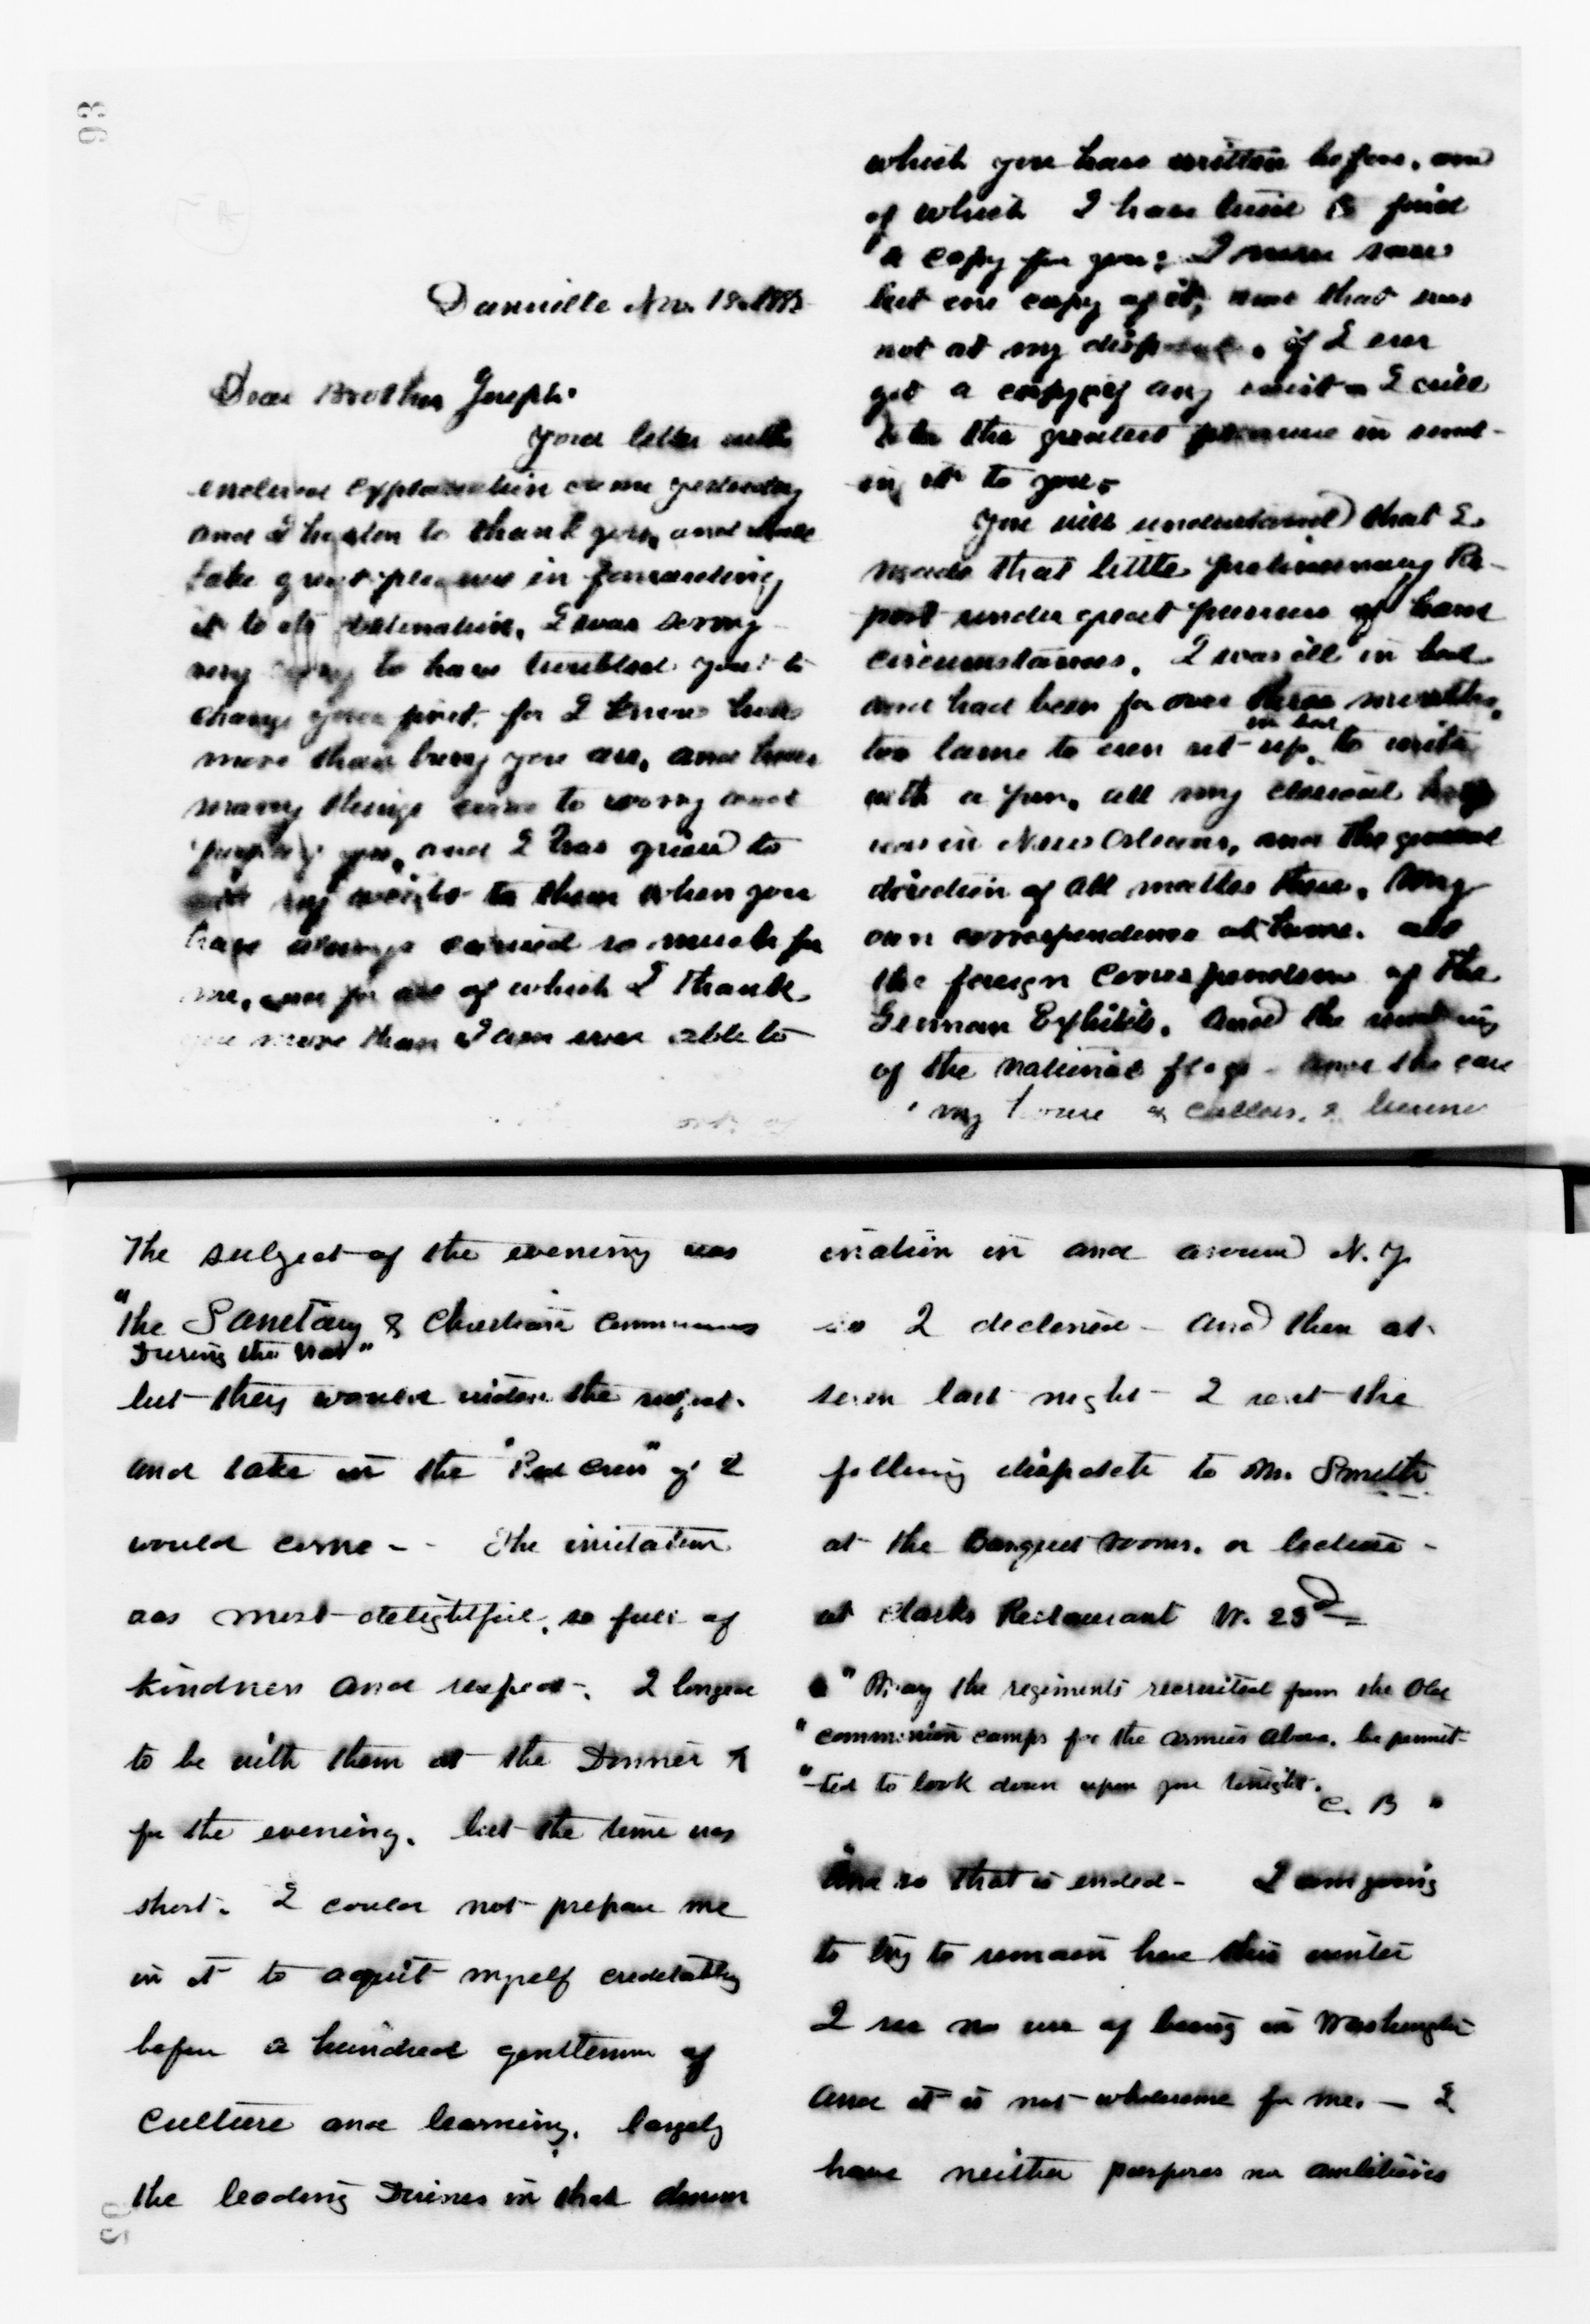 93
Dansville Nov. 18. 1885
Dear Brother Joseph.
Your letter with
enclosed explanation came yesterday
and I hasten to thank you, and shall
take great pleasure in forwarding
it to its destination, I was sorry
very sorry to have troubled you to
change your print, for I know how
more than busy you are, and how
many things come to worry and
you, and I was grieved to
add my weight to them when you
have always carried so much for
me, and for all of which I thank
you more than I am ever able to
which you have written before, and
of which I have tried to find
a copy for you; I never saw
but one copy of it, and that was
not at my disposal. if I ever
get a copy of any sort I will
take the greatest pleasure in send-
ing it to you.
You will understand that I
made that little preliminary Re-
port under great pressure of hard
circumstances. I was ill in bed
and had been for over three months,
too lame to even sit up in bed to write
with a pen, all my clerical help
was in New Orleans, and the general
direction of all matters there, my
own correspondence at home. all
the foreign Correspondence of the
German Exhibits, and the making
of the national flags - and the care
my house & callers, &
The subject of the evening was
"The Sanitary & Christian Commissions
During the War"
but they would widen the subject.
and take in the "Red Cross" if I
would come - - The invitation
was most delightful, so full of
kindness and respect -. I longed
to be with them at the Dinner &
for the evening. but the time was
short. I could not prepare me
in it to aquit myself creditably
before a hundred gentlemen of
Culture and learning, largely
the leading Divines in that denom
ination in and around N. Y
so I declined - and then at
seven last night - I sent the
following dispatch to Mr. Smith
at the Banquet rooms, or lecture -
at Clarks Restaurant W. 23d
" May the regiments recruited from the Old
" commission camps for the armies above, be permit-
" -ted to look down upon you tonight.
C. B "
And so that is ended - I am going
to try to remain here this winter
I see no use of being in Washington
and it is not wholesome for me. — I
have neither purposes nor ambitions